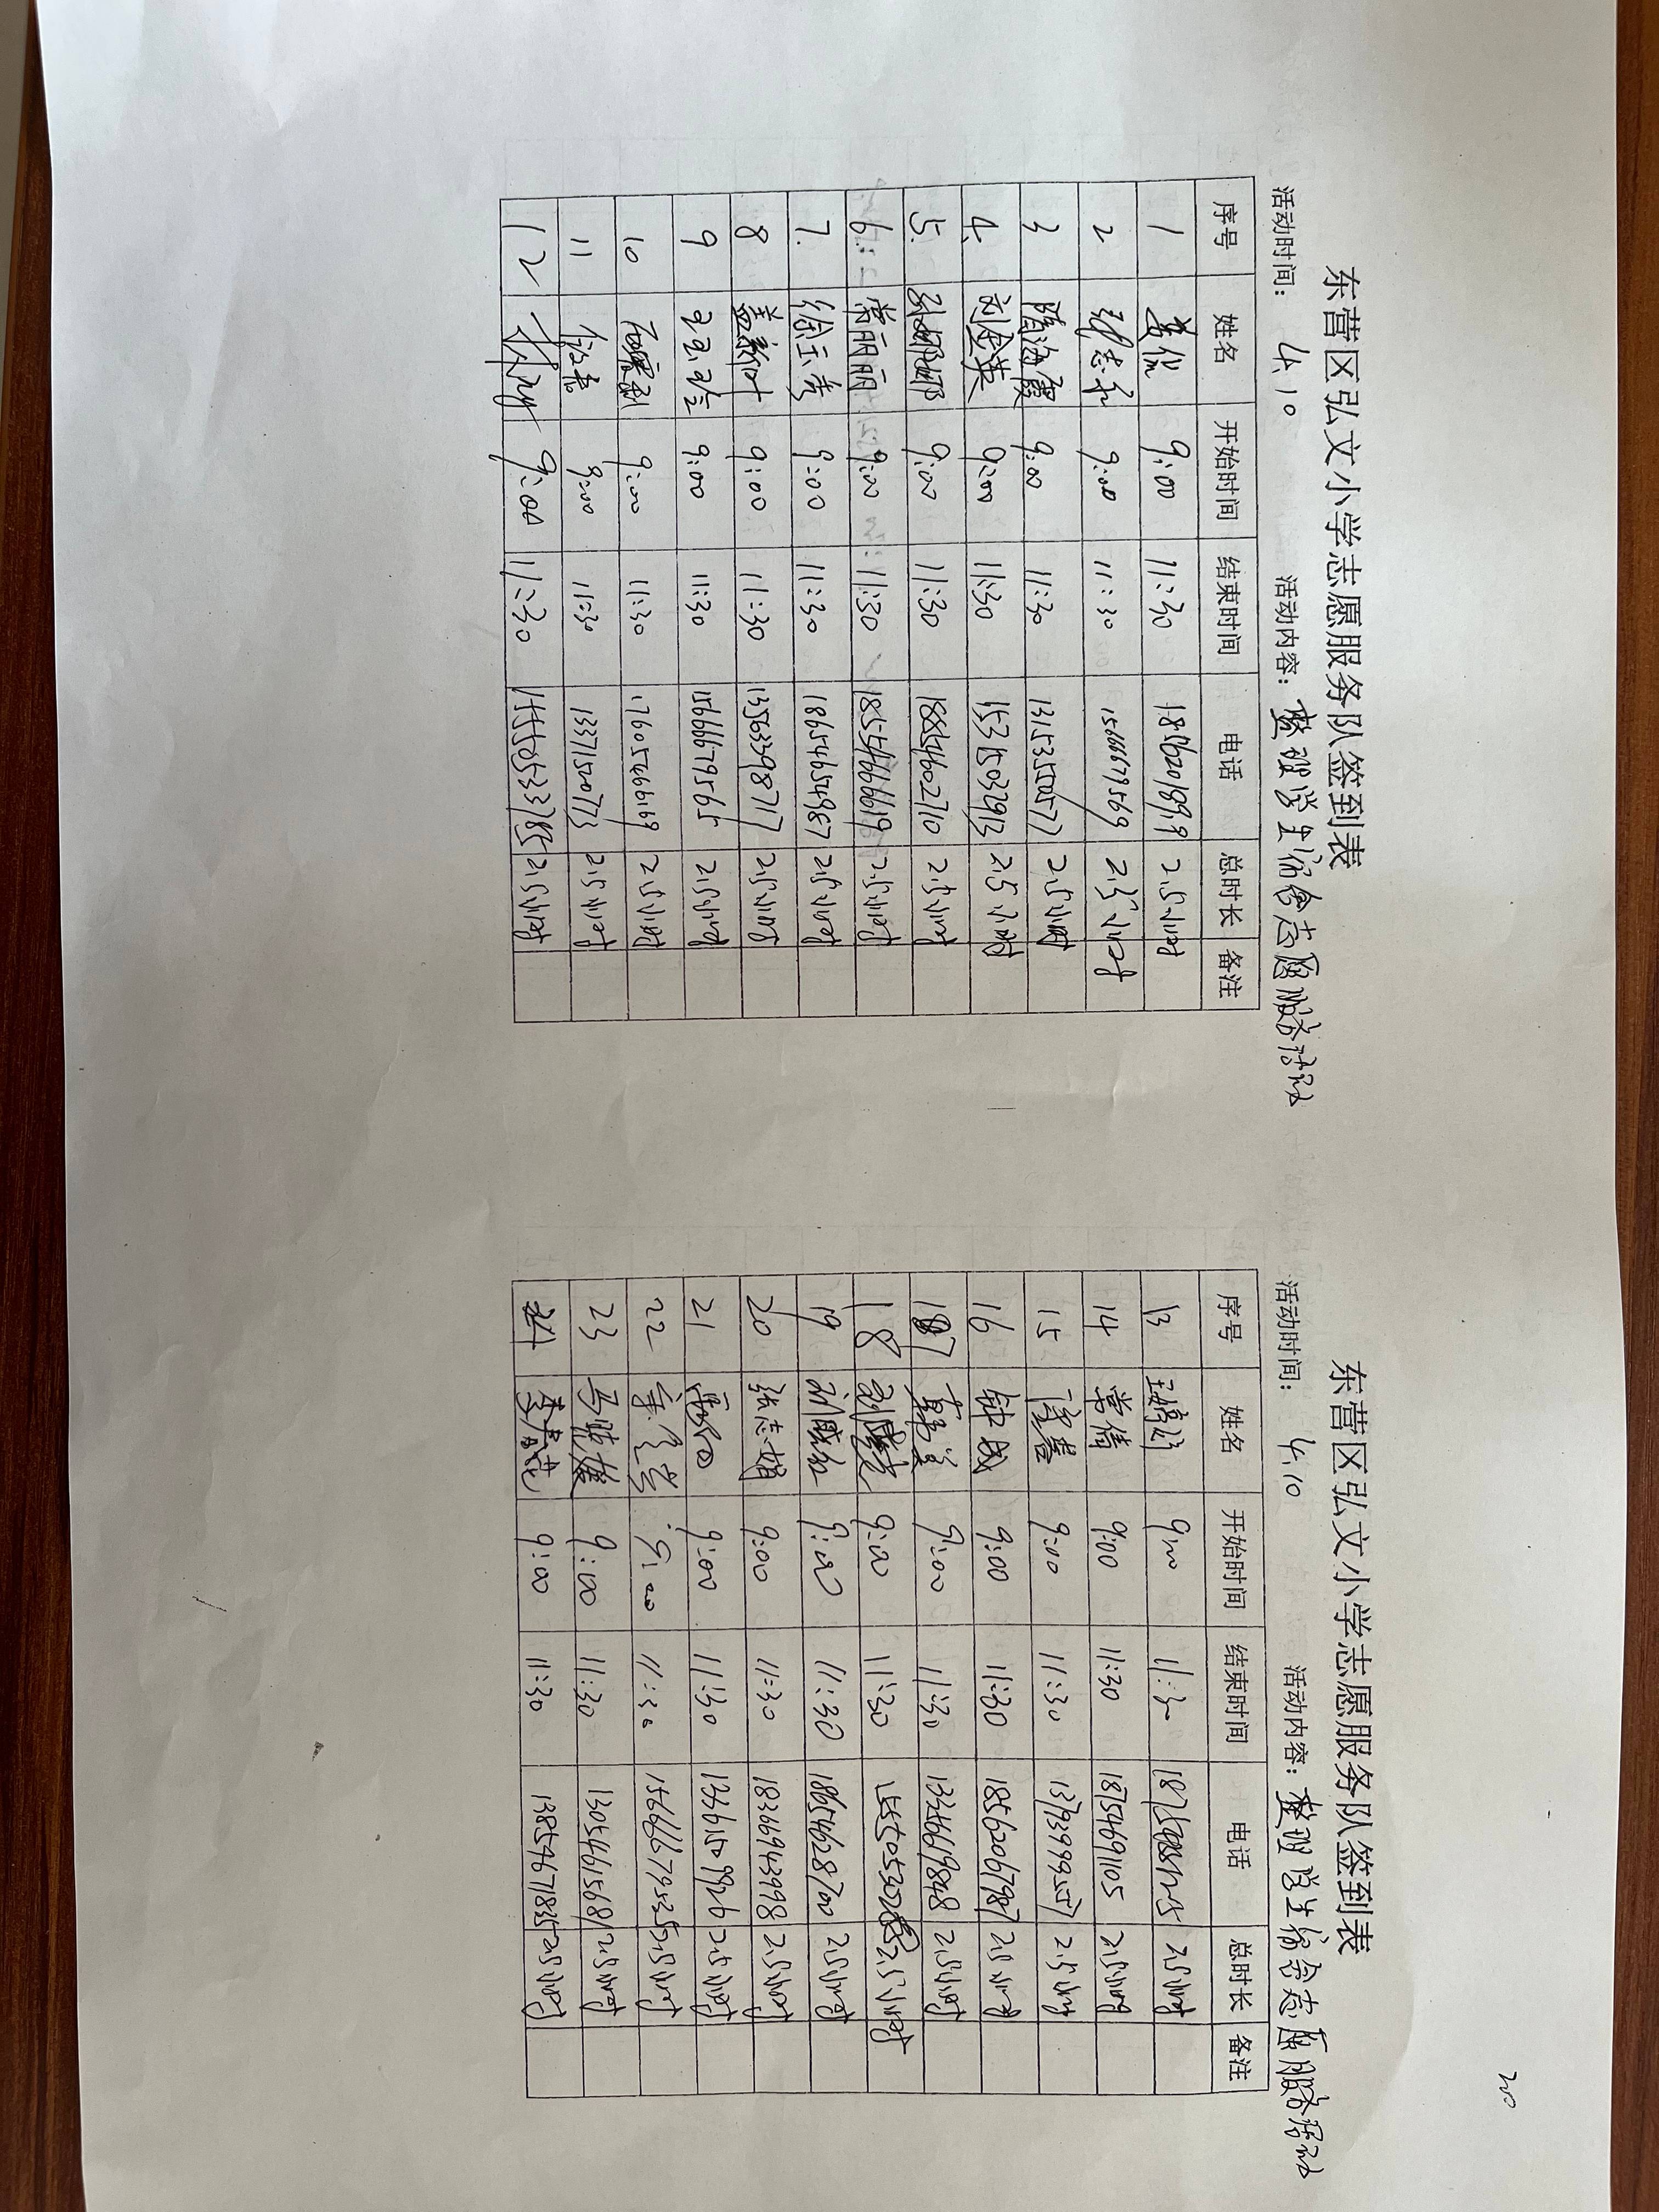 东营区弘文小学志愿服务队签到表
活动时间: 4.10 活动内容: 整理学生宿舍志愿服务活动
序号 姓名 开始时间 结束时间 电话 总时长 备注
1 9:00 11:30 18562018919 2.5小时
2 9:00 11:30 15666679569 2.5小时
3 陈海霞 9:00 11:30 13153550577 2.5小时
4. 刘金英 9:00 11:30 15315032913 2.5小时
5. 孙娜娜 9:00 11:30 18854602710 2.5小时
6. 常丽丽 9:00 11:30 18554666619 2.5小时
7. 徐玉秀 9:00 11:30 18654654987 2.5小时
8 盖新叶 9:00 11:30 13563398717 2.5小时
9 9:00 11:30 15666679565 2.5小时
10 9:00 11:30 17605466169 2.5小时
11 9:00 11:30 13371520773 2.5小时
12 9:00 11:30 2.5小时
东营区弘文小学志愿服务队签到表
活动时间: 4.10 活动内容: 整理学生宿舍志愿服务活动
序号 姓名 开始时间 结束时间 电话 总时长 备注
13 9:00 11:30 2.5小时
14 常倩 9:00 11:30 18754691105 2.5小时
15 9:00 11:30 13793999557 2.5小时
16 钟成 9:00 11:30 18562067987 2.5小时
17 9:00 11:30 13354619848 2.5小时
18 9:00 11:30 2.5小时
19 9:00 11:30 18654628700 2.5小时
20 张志娟 9:00 11:30 18366943998 2.5小时
21 9:00 11:30 2.5小时
22 9:00 11:30 15666679525 2.5小时
23 马晓燕 9:00 11:30 13054615681 2.5小时
24 李春花 9:00 11:30 13854671835 2.5小时